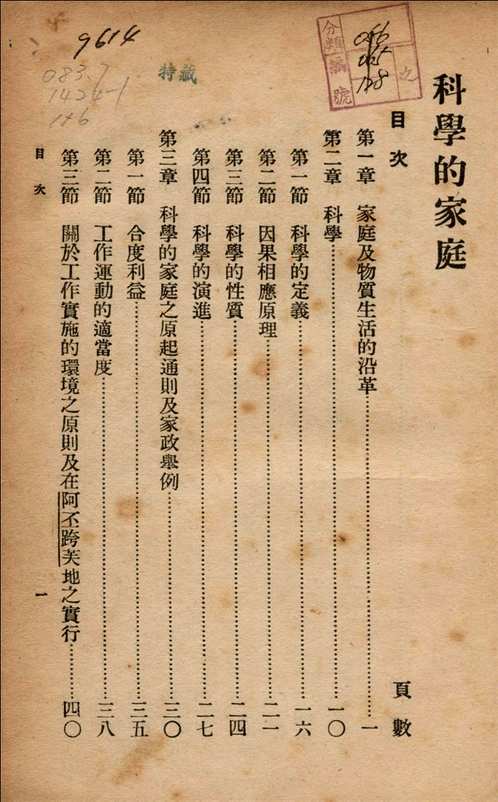 科學的家庭
目次 頁數
第一章 家庭及物質生活的沿革 一
第二章 科學 一〇
第一節 科學的定義 一六
第二節 因果相應原理 二一
第三節 科學的性質 二四
第四節 科學的演進 二七
第三章 科學的家庭之原起通則及家政舉例 三〇
第一節 合度利益 三五
第二節 工作運動的適當度 三八
第三節 關於工作實施的環境之原則及在阿丕跨芙地之實行 四〇
目次 一
9614
083.7
1424-1
146
特藏
分類編號
之